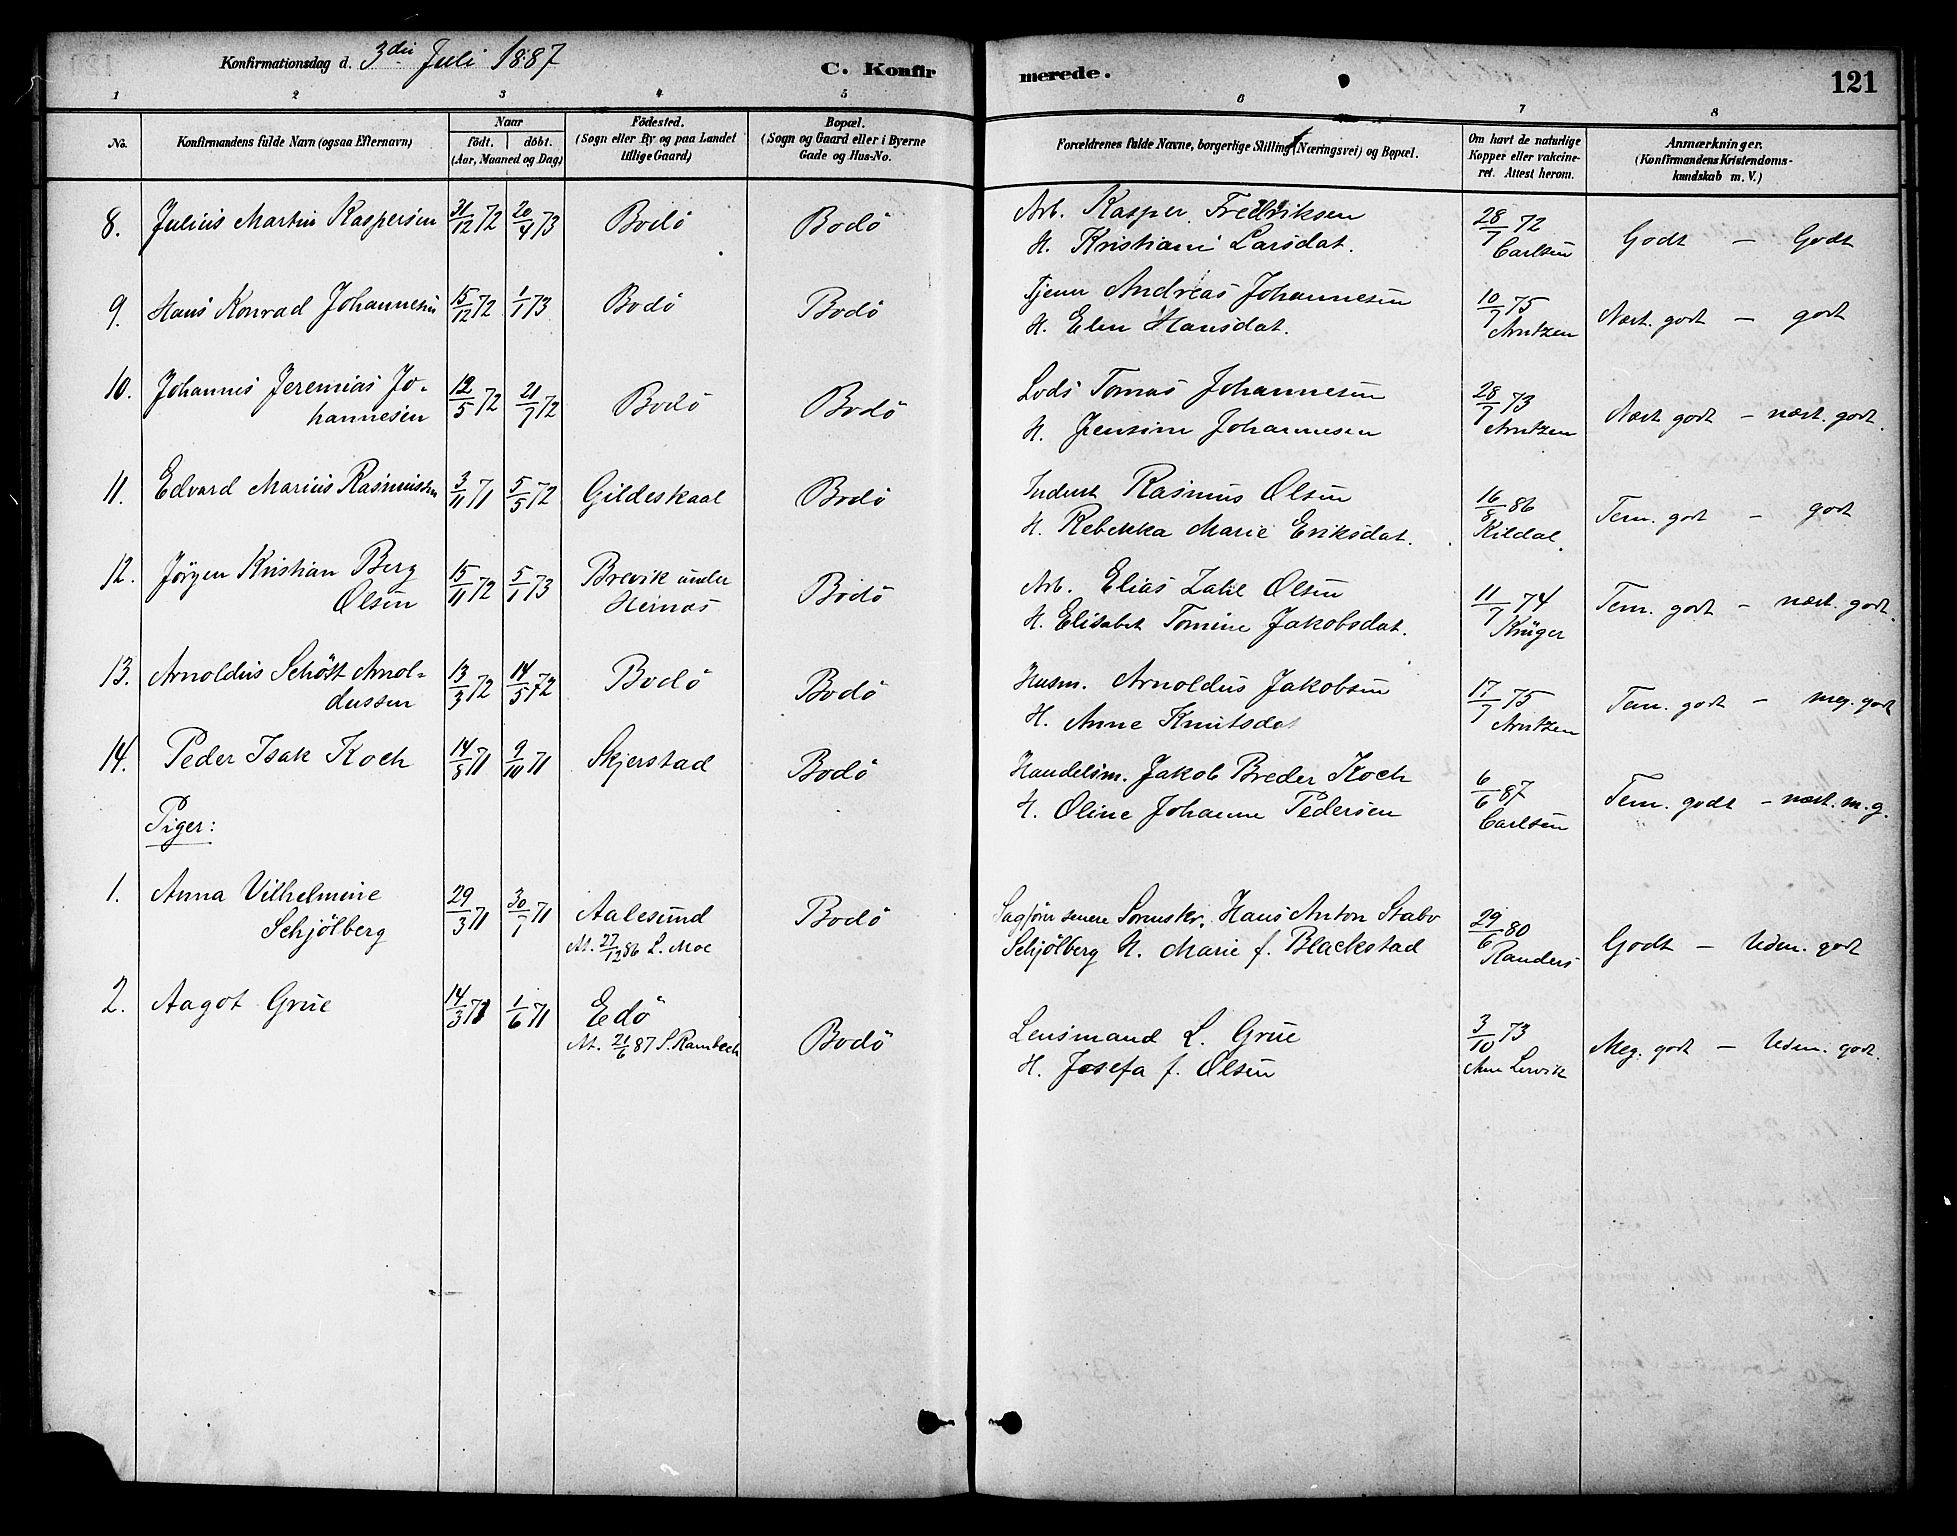 Konfirmationsdag d. 3die Juli 1887
C. Konfirmerede.
121
1 2 3 4 5 6 7 8
No.
Konfirmandens fulde Navn (ogsaa Efternavn)
Naar
födt. döbt.
(Aar, Maaned og Dag)
Födested.
(Sogn eller By og paa Landet
tillige Gaard)
Bopæl.
(Sogn og Gaard eller i Byerne
Gade og Hus-No.
Forældrenes fulde Navne, borgerlige Stilling (Næringsvei) og Bopæl.
Om havt de naturlige
Kopper eller vakcine-
ret. Attest herom.
Anmærkninger.
(Konfirmandens Kristendoms-
kundskab m. V.)
8. Julius Martin Kaspersen 31/12 72 20/4 73 Bodö Bodö Arb. Kasper Fredriksen 28/7 72 Godt – Godt
H. Kristiane Larsdat. Carlsen
9. Hans Konrad Johannesen 15/12 72 1/1 73 Bodö Bodö Tjener Andreas Johannesen 10/7 75 Næst. godt – godt
H. Elen Hansdat. Arntzen
10. Johannes Jeremias Jo- 12/5 72 21/7 72 Bodö Bodö Lods Tomas Johannesen 28/7 73 Næst godt – næst. godt.
hannesen H. Jensine Johannesen Arntzen
11. Edvard Marius Rasmussen 3/11 71 5/5 72 Gildeskaal Bodö Inderst Rasmus Olsen 16/8 86 Tem. godt – godt
H. Rebekka Marie Eriksdat. Kildal.
12. Jörgen Kristian Berg 15/11 72 5/1 73 Brevik under Bodö Arb. Elias Zakl Olsen 11/7 74 Tem. godt – næst. godt.
Olsen Hernæs H. Elisabet Tomine Jakobsdat. Krüger
13. Arnoldus Schött Arnol- 13/3 72 14/5 72 Bodö Bodö Husm. Arnoldus Jakobsen 17/7 75 Tem. godt – meg. godt
dussen H. Anne Knutsdat Arntzen
14. Peder Isak Koch 14/8 71 9/10 71 Skjerstad Bodö Handelsm. Jakob Breder Koch 6/6 87 Tem. godt – næst. m. g.
H. Oline Johanne Pedersen Carlsen
Piger:
1. Anna Vilhelmine 29/3 71 30/7 71 Aalesund Bodö Sagförer senere Sorenskr. Hans Anton Stabo 29/6 80 Godt – Udm. godt
Schjölberg At. 27/12 86 L. Moe Schjölberg H. Marie f. Blackstad Randers
2. Aagot Grue 14/3 71 1/6 71 Edö Bodö Lensmand L. Grue 3/10 73 Meg. godt – Udm. godt.
At. 21/6 87 S. Rambech H. Josefa f. Olsen Lervik